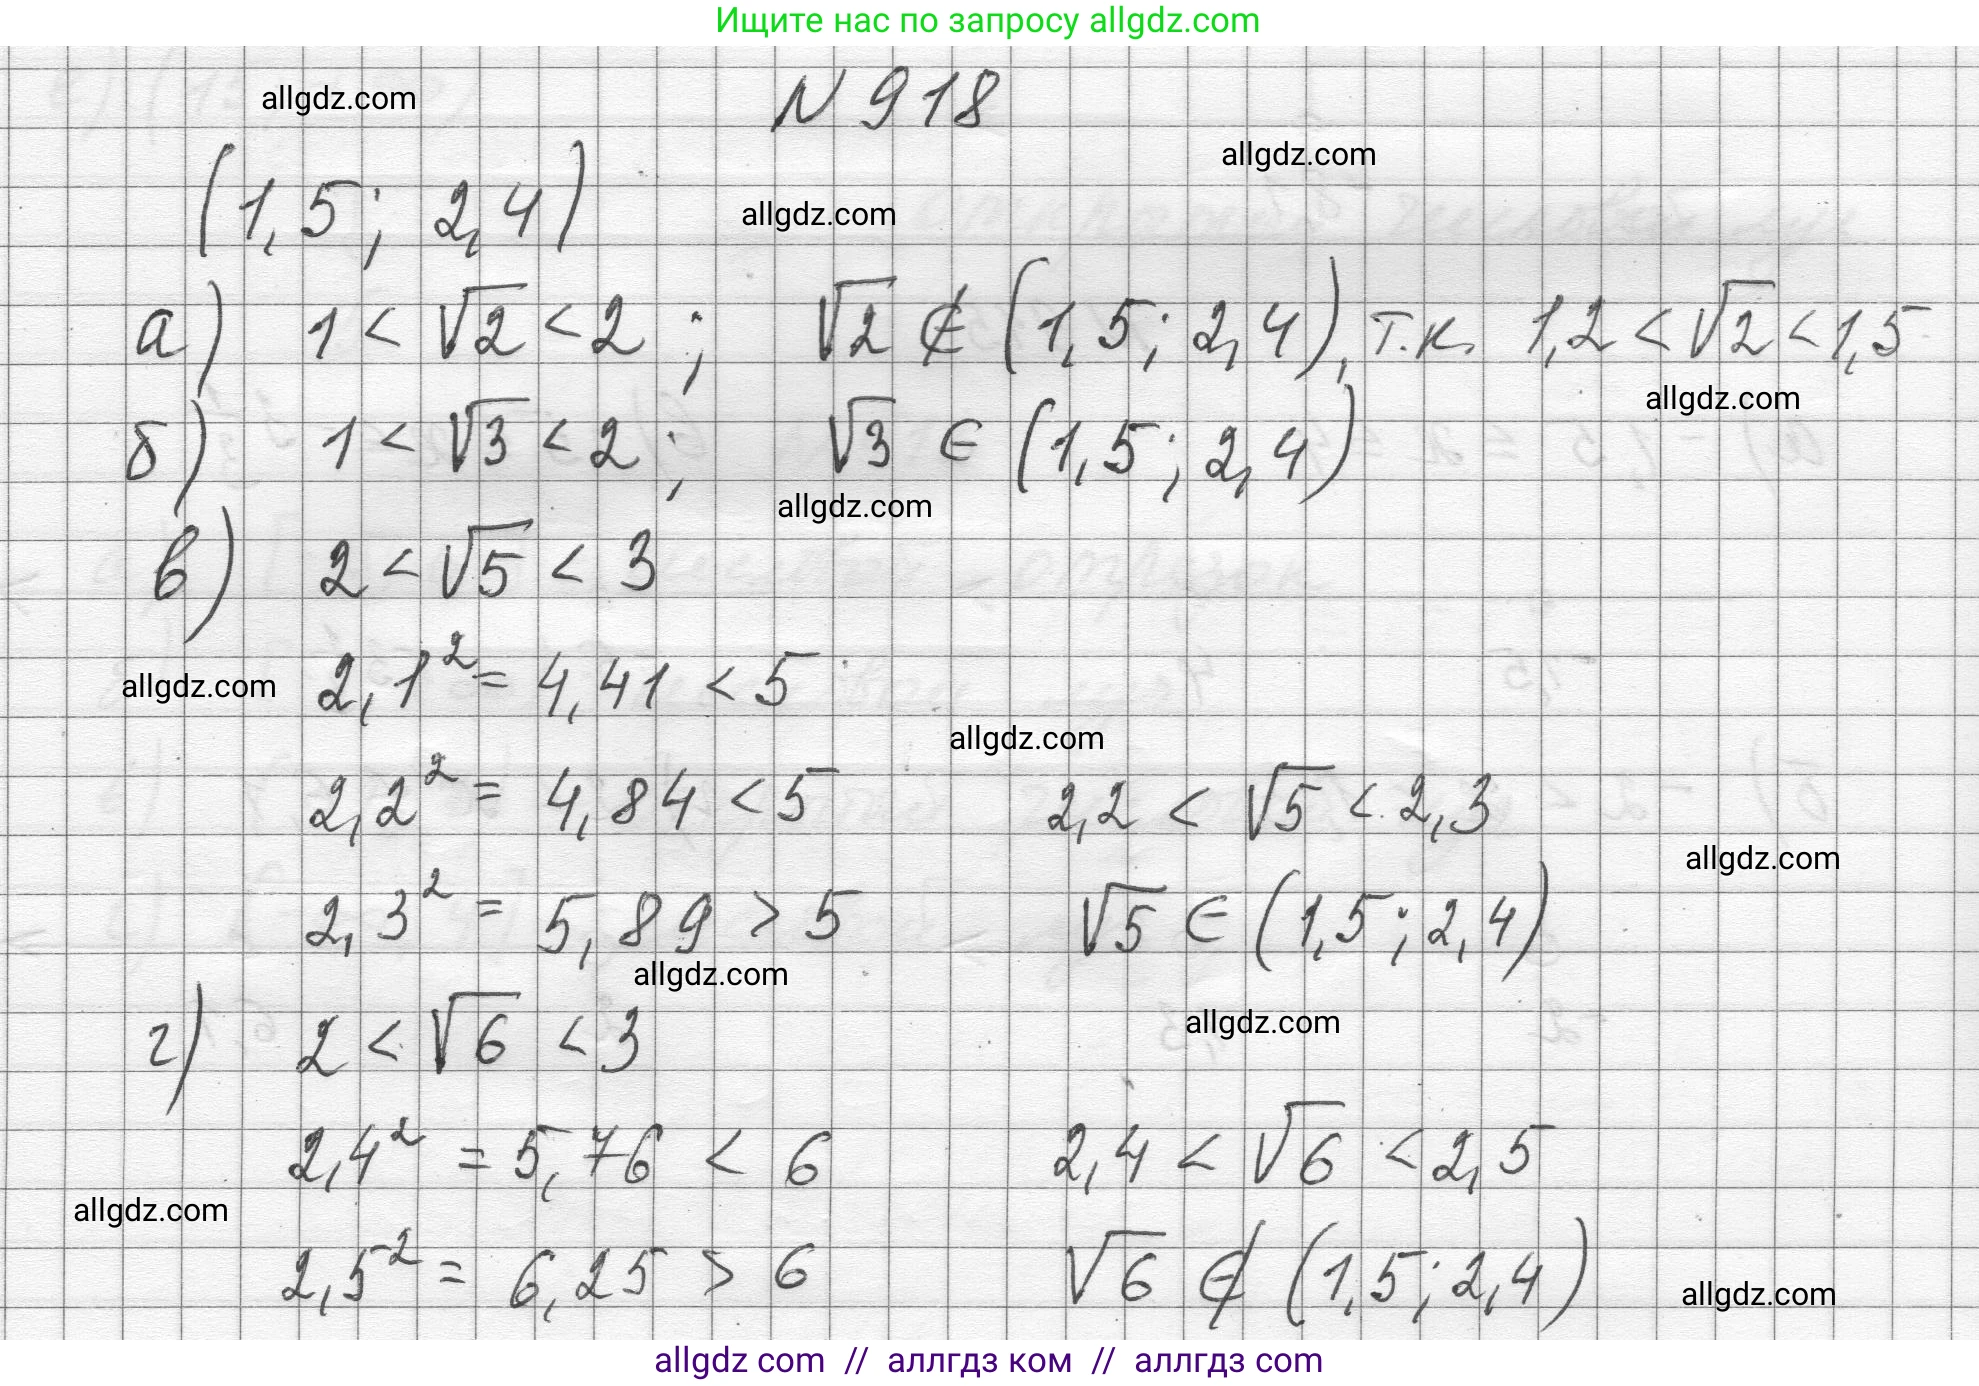 Ищите нас по запросу allgdz.com
allgdz.com
N 918
allgdz.com
(1,5; 2,4)
allgdz.com
а) 1 < √2 < 2 ; √2 ∉ (1,5; 2,4), т.к. 1,2 < √2 < 1,5
allgdz.com
б) 1 < √3 < 2 ; √3 ∈ (1,5; 2,4)
allgdz.com
в) 2 < √5 < 3
2,1² = 4,41 < 5
allgdz.com
allgdz.com
2,2² = 4,84 < 5 2,2 < √5 < 2,3
allgdz.com
2,3² = 5,89 > 5 √5 ∈ (1,5; 2,4)
allgdz.com
allgdz.com
г) 2 < √6 < 3
2,4² = 5,76 < 6 2,4 < √6 < 2,5
allgdz.com
2,5² = 6,25 > 6 √6 ∉ (1,5; 2,4)
allgdz.com
allgdz com // аллгдз ком // аллгдз com